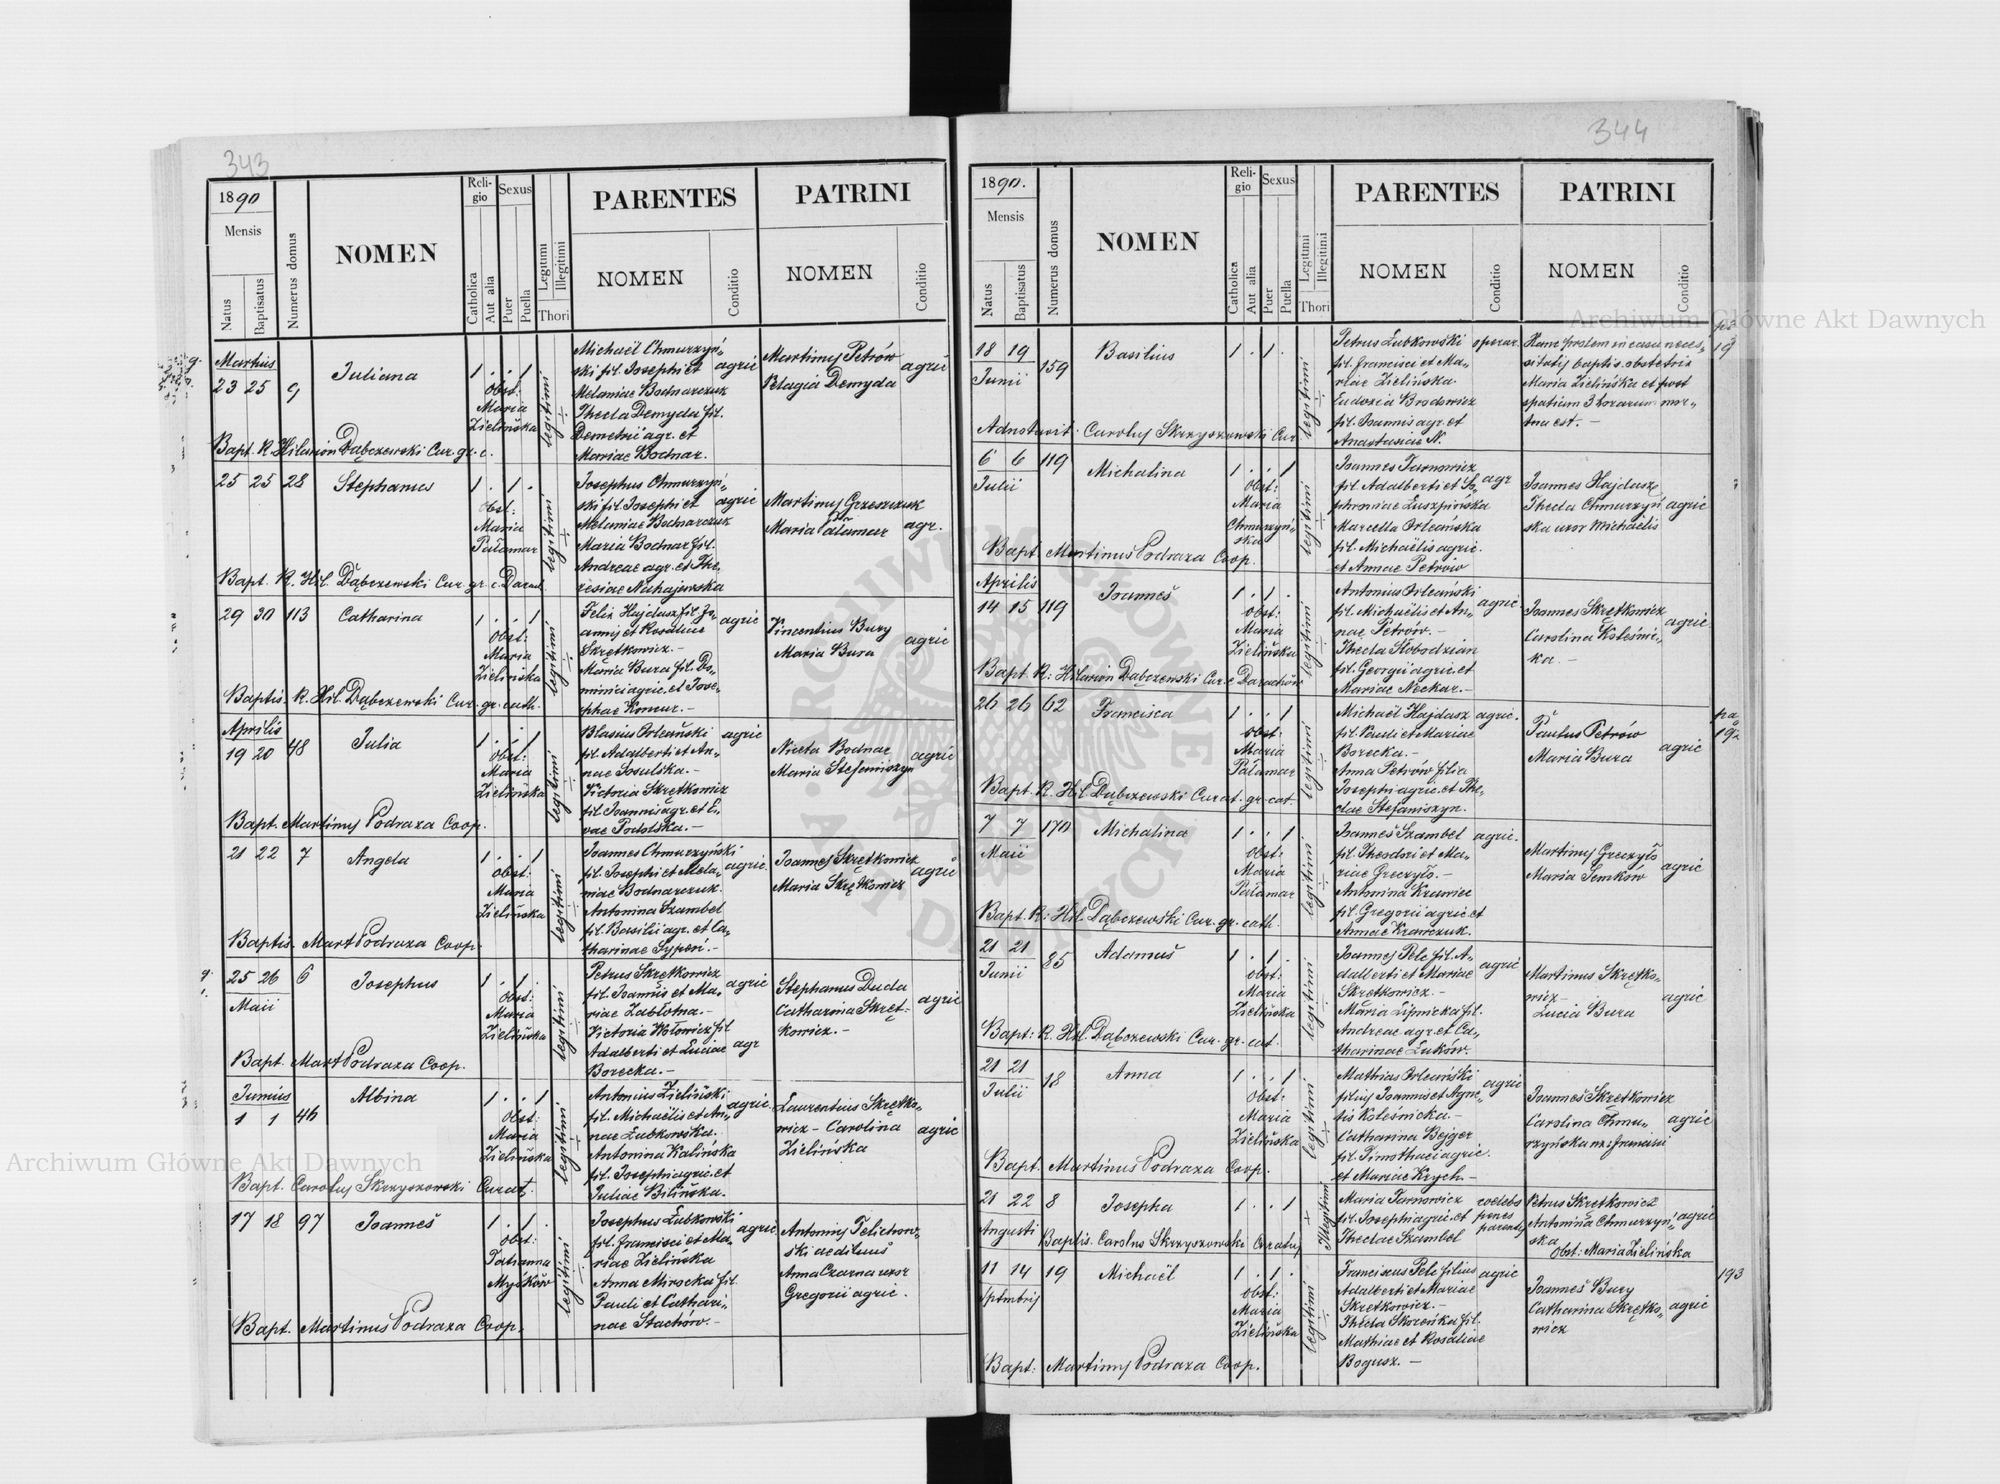 343
1890
Mensis
Natus
Baptisatus
Numerus domus
NOMEN
Reli-
gio
Catholica
Aut alia
Sexus
Puer
Puella
Legitimi
Illegitimi
Thori
PARENTES
NOMEN
Conditio
PATRINI
NOMEN
Conditio
Martius
23 25 9 Juliana 1 . . 1
Obst:
Maria
Zielińska
legitimi
Michaël Chmurzyń-
ski fil. Josephi et
Melaniae Bodnarczuk
Thecla Demyda fil.
Demetrii agr. et
Mariae Bodnar.
agric
Martinus Petrów
Pelagia Demyda
agric
Bapt. R. Hilarion Dąbczewski Cur. gr. c.
25 25 28 Stephanus 1 . 1 .
Obst:
Maria
Pałamar
legitimi
Josephus Chmurzyń-
ski fil. Josephi et
Melaniae Bodnarczuk
Maria Bodnar fil.
Andreae agr. et The-
resiae Nahajewska
agric
Martinus Grzeszczuk
Maria Pałamar
agr.
Bapt. R. Hil. Dąbczewski Cur. gr. c. Darach.
29 30 113 Catharina 1 . . 1
Obst:
Maria
Zielińska
legitimi
Felix Hajdusz fil. Jo-
annis et Rosaliae
Skrętkowicz.-
Maria Bura fil. Do-
minici agric. et Jose-
phae Komur.-
agric
Vincentius Bury
Maria Bura
agric
Baptis. R. Hil. Dąbczewski Cur. gr. cath.
Aprilis
19 20 48 Julia 1 . . 1
Obst:
Maria
Zielińska
legitimi
Blasius Orleański
fil. Adalberti et An-
nae Sosulska.-
Victoria Skrętkowicz
fil. Joannis agr. et E-
vae Podolska.-
agric
Niceta Bodnar
Maria Stefaniszyn
agric
Bapt. Martinus Podraza Coop.
21 22 7 Angela 1 . . 1
Obst:
Maria
Zielińska
legitimi
Joannes Chmurzyński
fil. Josephi et Mela-
niae Bodnarczuk.
Antonina Szambel
fil. Basilii agr. et Ca-
tharinae Sypeń.-
agric.
Joannes Skrętkowicz
Maria Skrętkowicz
agric
Baptis. Mart Podraza Coop.
25 26 6 Josephus 1 . 1 .
Maii
Obst:
Maria
Zielińska
legitimi
Petrus Skrętkowicz
fil. Joannis et Ma-
riae Zabłotna.-
Victoria Wołowicz fil
Adalberti et Luciae
Borecka.-
agric
agr
Stephanus Duda
Catharina Skręt-
kowicz.-
agric
Bapt. Mart Podraza Coop.
Junius
1 1 46 Albina 1 . . 1
Obst:
Maria
Zielińska
legitimi
Antonius Zieliński
fil. Michaëlis et An-
nae Łubkowska.
Antonina Kalińska
fil. Josephi agric. et
Juliae Bilińska.
agric.
Laurentius Skrętko-
wicz - Carolina
Zielińska
agric
Bapt. Carolus Skrzyszowski Curat.
17 18 97 Joannes 1 . 1
Obst:
Tatianna
Myśków
legitimi
Josephus Łubkowski
fil. Francisci et Ma-
riae Zielińska
Anna Mirocka fil.
Pauli et Cathari-
nae Stachów.-
agric
Antonius Telichow-
ski aedituus
Anna Czarna uxor
Gregorii agric.
Bapt. Martinus Podraza Coop.
344
1890.
Mensis
Natus
Baptisatus
Numerus domus
NOMEN
Reli-
gio
Catholica
Aut alia
Sexus
Puer
Puella
Legitimi
Illegitimi
Thori
PARENTES
NOMEN
Conditio
PATRINI
NOMEN
Conditio
18 19 159 Basilius 1 . 1 .
Junii
legitimi
Petrus Łubkowski
fil. Francisci et Ma-
riae Zielińska.
Eudoxia Brodowicz
fil. Joannis agr. et
Anastasiae N.
operar.
Hanc prolem in casu neces-
sitatis baptis. obstetrix
Maria Zielińska et post
spatium 3 horarum mor-
tua est.-
Adnotavit. Carolus Skrzyszowski Cur.
6 6 119 Michalina 1 . . 1
Julii
Obst:
Maria
Chmurzyń-
ska
legitimi
Joannes Tarnowicz
fil Adalberti et So-
phroniae Łuszpińska
Marcella Orleańska
fil. Michaëlis agric.
et Annae Petrów
agr
Joannes Hajdusz
Thecla Chmurzyń-
ska uxor Michaëlis
agric
Bapt. Martinus Podraza Coop.
Aprilis
14 15 119 Joannes 1 . 1 .
Obst:
Maria
Zielińska
legitimi
Antonius Orleański
fil. Michaëlis et An-
nae Petrów.-
Thecla Kobodzian
fil. Georgii agric. et
Mariae Neckar.-
agric.
Joannes Skrętkowicz
Carolina Koleśni-
ka.-
agric
Bapt. R: Hilarion Dąbczewski Cur. c Darachów
26 26 62 Francisca 1 . . 1
obst:
Maria
Pałamar
legitimi
Michaël Hajdusz
fil. Pauli et Mariae
Borecka.-
Anna Petrów filia
Josephi agric. et The-
clae Stefaniszyn.
agric.
Paulus Petrów
Maria Bura
agric
Bapt. R. Hil Dąbczewski Curat. gr. cat.
7 7 170 Michalina 1 . . 1
Maii
obst:
Maria
Pałamar
legitimi
Joannes Szambel
fil. Theodori et Ma-
riae Greczyło.-
Antonina Krawiec
fil. Gregorii agric et
Annae Krawczuk.
agric.
Martinus Greczyło
Maria Semków
agric
Bapt. R: Hil. Dąbczewski Cur. gr. cath.
21 21 85 Adamus 1 . 1 .
Junii
obst:
Maria
Zielińska
legitimi
Joannes Pelc fil. A-
dalberti et Mariae
Skrętkowicz.-
Maria Lipnicka fil.
Andreae agr. et Ca-
tharinae Łuków.
agric
Martinus Skrętko-
wicz-
Lucia Bura
agric
Bapt: R. Hil. Dąbczewski Cur. gr. cat.
21 21 18 Anna 1 . . 1
Julii
Obst:
Maria
Zielińska
legitimi
Mathias Orleański
filius Joannis et Agne-
tis Koleśnicka.-
Catharina Bejger
fil. Timothaei agric.
et Mariae Krych.-
agric
Joannes Skrętkowicz
Carolina Chmu-
rzyńska ux. Francisci
agric
Bapt. Martinus Podraza Coop.
21 22 8 Josepha 1 . . 1
Augusti
Illegitimi
Maria Tarnowicz
fil. Josephi agric. et
Theclae Szambel
coelebs
penes
parentes
Petrus Skrętkowicz
Antonina Chmurzyń-
ska
agric
Obst: Maria Zielińska
Baptis. Carolus Skrzyszowski Curatus
11 14 19 Michaël 1 . 1 .
Septmbris
Obst:
Maria
Zielińska
legitimi
Franciscus Pelc filius
Adalberti et Mariae
Skrętkowicz.-
Thecla Skoreńka fil.
Mathiae et Rosaliae
Bogusz.-
agric
Joannes Bury
Catharina Skrętko-
wicz
agric
193
Bapt: Martinus Podraza Coop.
Archiwum Główne Akt Dawnych
Archiwum Główne Akt Dawnych
ARCHIWUM GŁÓWNE AKT DAWNYCH